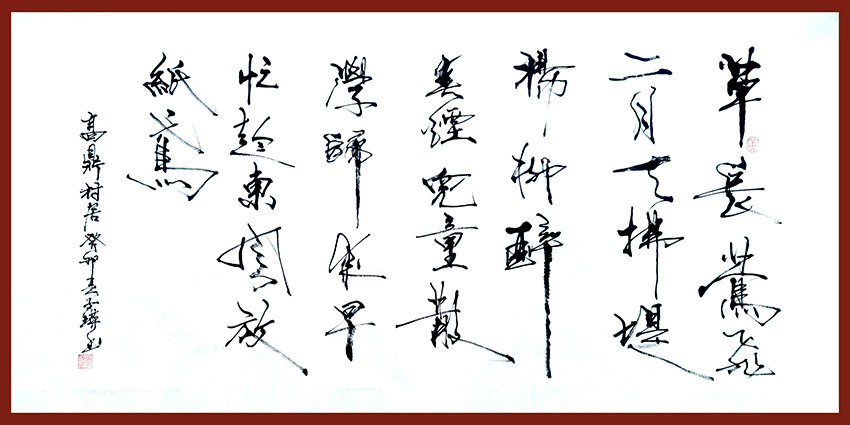 草長鶯飛
二月天拂堤
楊柳醉
春煙兒童散
學歸來早
忙趁東風放
紙鳶
高鼎村居癸卯春子書